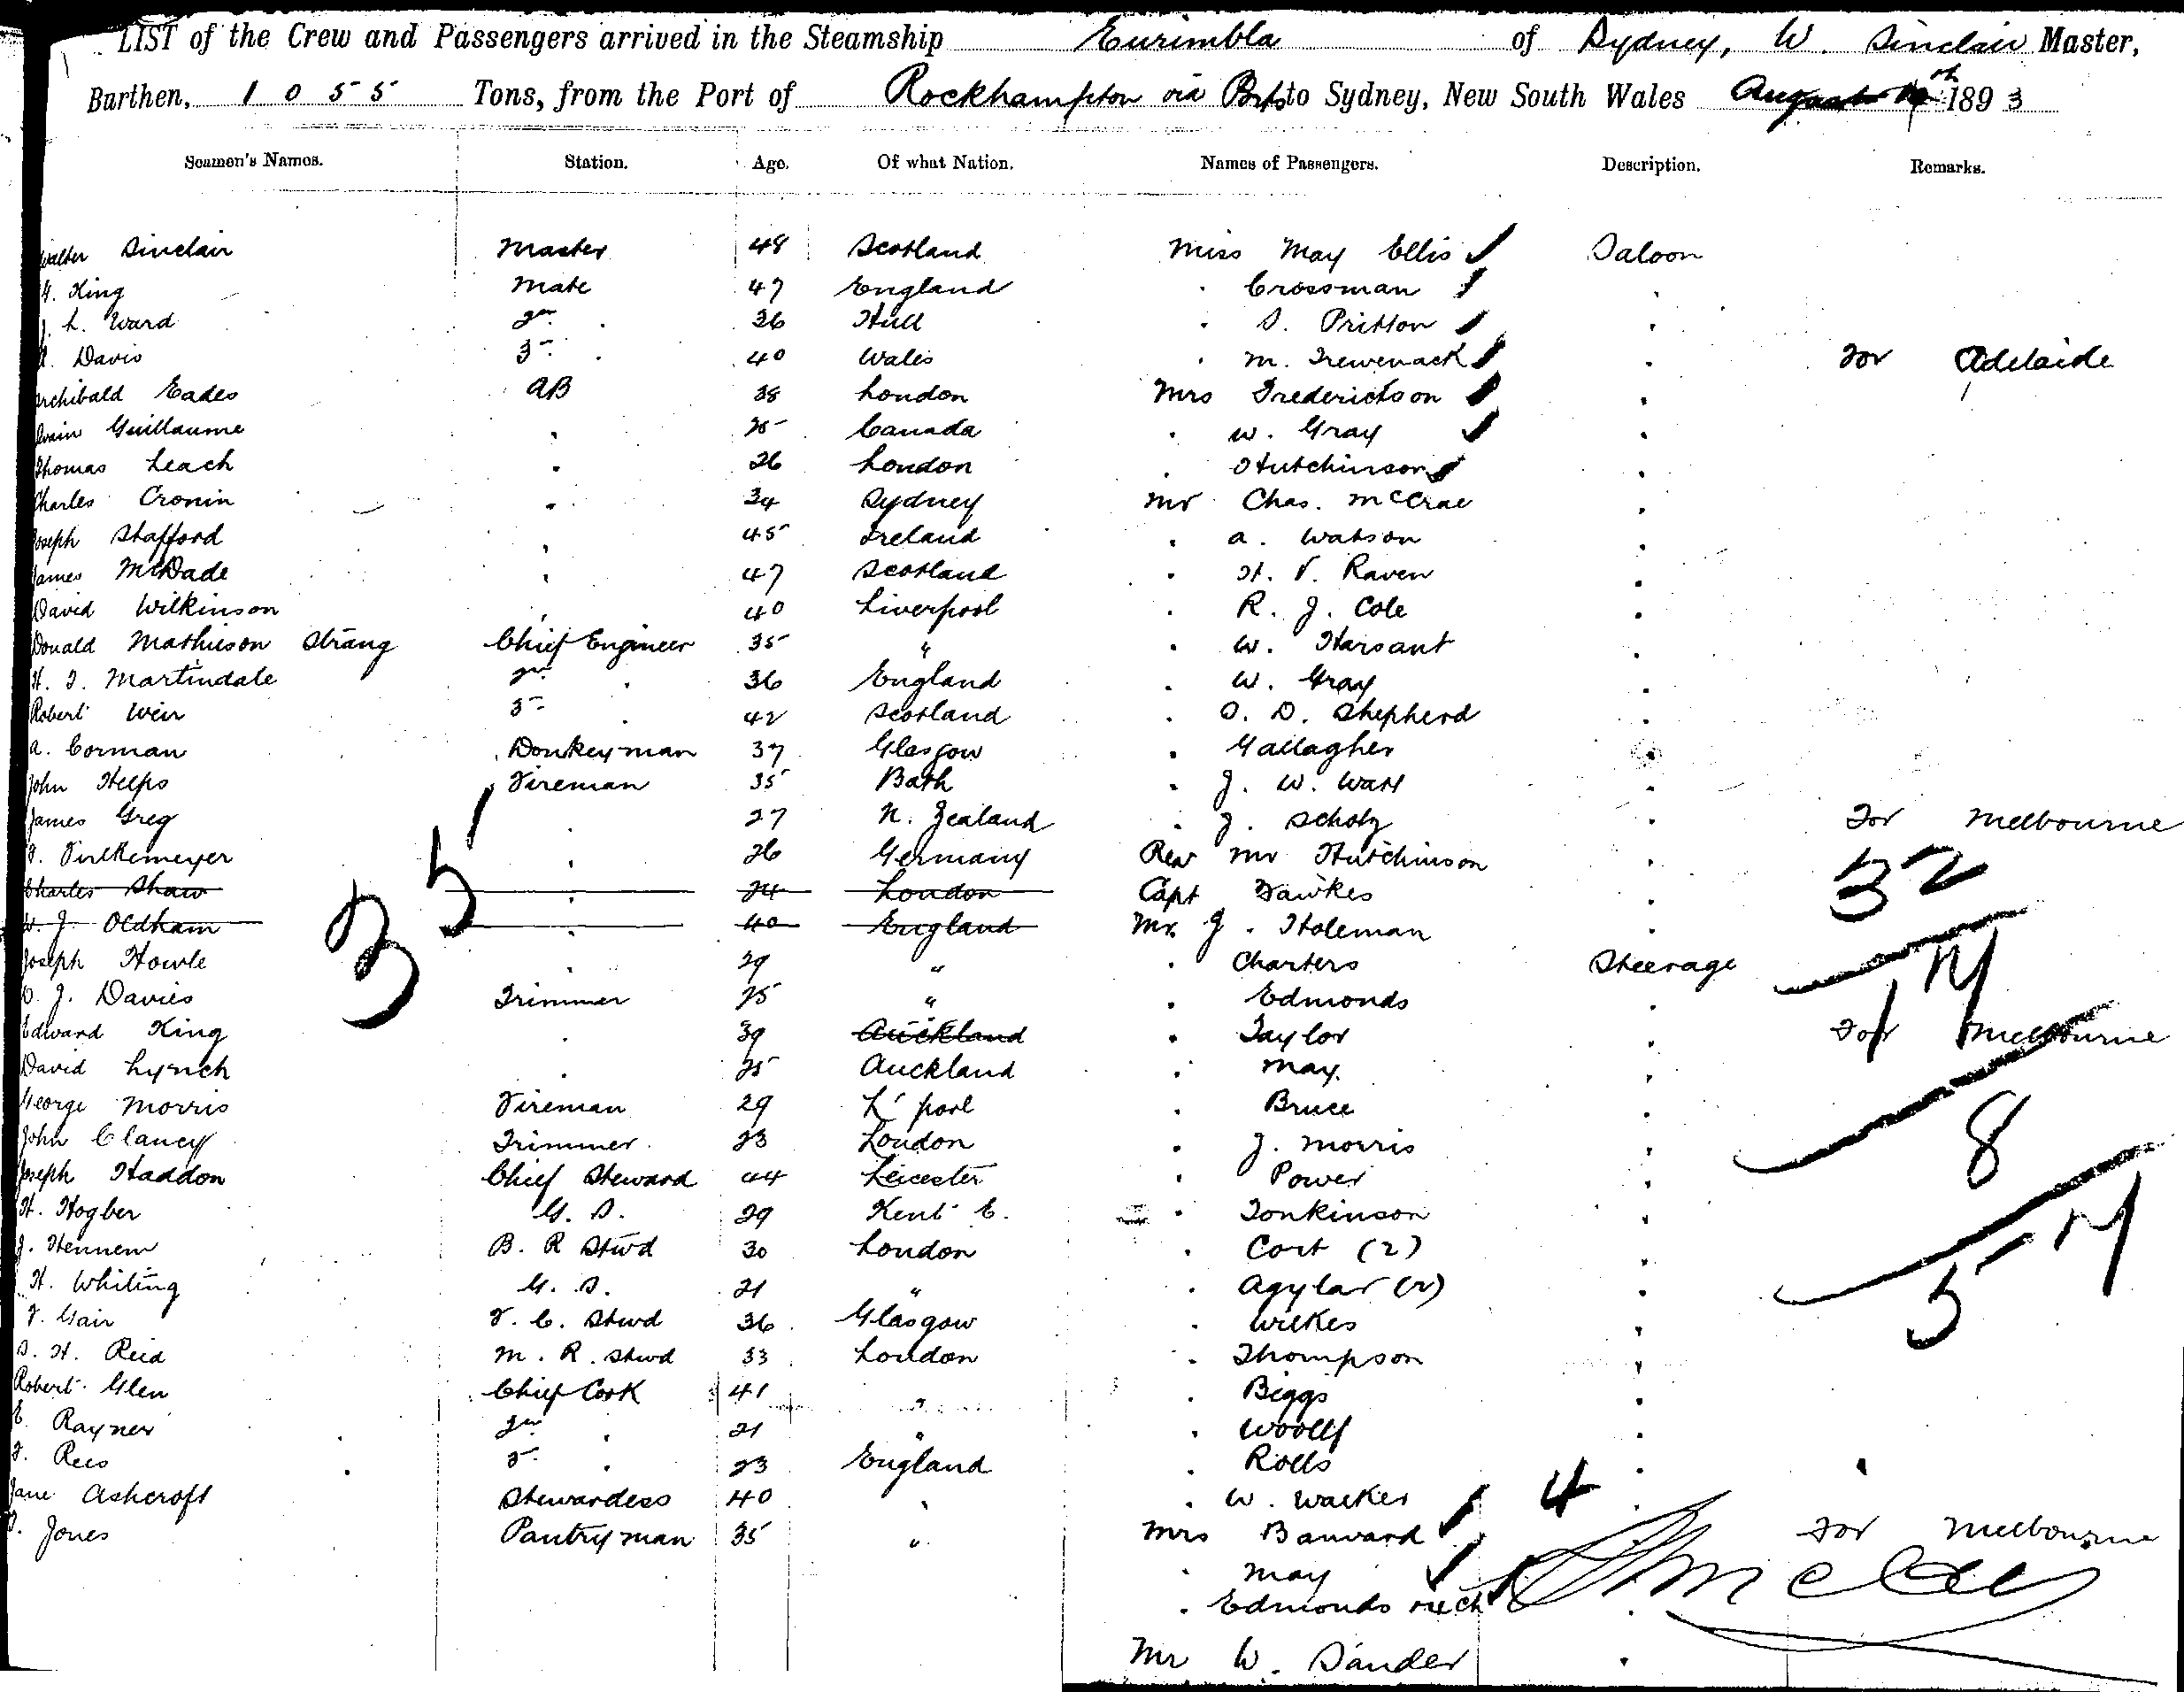 LIST of the Crew and Passengers arrived in the Steamship Eurimbla of Sydney, W. Sinclair Master,
Burthen, 1055 Tons, from the Port of Rockhampton via Ports to Sydney, New South Wales August 1893
Seamen's Names. Station. Age. Of what Nation. Names of Passengers. Description. Remarks.
Walter Sinclair Master 48 Scotland Miss May Ellis Saloon
King Mate 47 England " Crossman "
J. L. Ward 2nd " 36 Hull " S. Pritton "
Davis 3rd " 40 Wales " M. Trewenack " For Adelaide
Archibald Eades AB 38 London Mrs Frederickson "
Guillaume " 25 Canada " W. Gray "
Thomas Leach " 26 London " Hutchinson "
Charles Cronin " 34 Sydney Mr Chas. McCrae "
Joseph Stafford " 45 Ireland " A. Watson "
James McDade " 47 Scotland " H. V. Raven "
David Wilkinson " 40 Liverpool " R. J. Cole "
Donald Mathieson Strang Chief Engineer 35 " " W. Harsant "
H. J. Martindale 2nd " 36 England " W. Gray "
Robert Weir 3rd " 42 Scotland " S. D. Shepherd "
A. Corman Donkeyman 37 Glasgow " Gallagher "
John Helps Fireman 35 Bath " J. W. Watt "
James Greg " 27 N. Zealand " J. Scholz " For Melbourne
Finkemeyer " 26 Germany Rev Mr Hutchinson "
Charles Shaw " 24 London Capt Fawkes "
W. J. Oldham " 40 England Mr J. Holeman "
35
32
Joseph Howle " 29 " " Charters Steerage
14
J. Davies Trimmer 25 " " Edmonds "
Edward King " 39 Auckland " Taylor " For Melbourne
David Lynch " 25 Auckland " May "
George Morris Fireman 29 L'pool " Bruce "
John Clancy Trimmer 23 London " J. Morris "
8
Joseph Haddon Chief Steward 44 Leicester " Power "
H. Hogber G. S. 29 Kent E. " Tonkinson "
J. Hennem B. R Stwd 30 London " Cort (2) "
H. Whiting G. S. 21 " " Agylar (2) "
54
F. Gair F. C. Stwd 36 Glasgow " Wilkes "
S. H. Reid M. R. Stwd 33 London " Thompson "
Robert Glen Chief Cook 41 " " Biggs "
E. Rayner 2nd " 21 " " Woolly "
Rees 3rd " 23 England " Rolls "
Jane Ashcroft Stewardess 40 " " W. Walker 4 "
Jones Pantryman 35 " Mrs Banvard For Melbourne
" May
" Edmonds
Mr W. Sander "